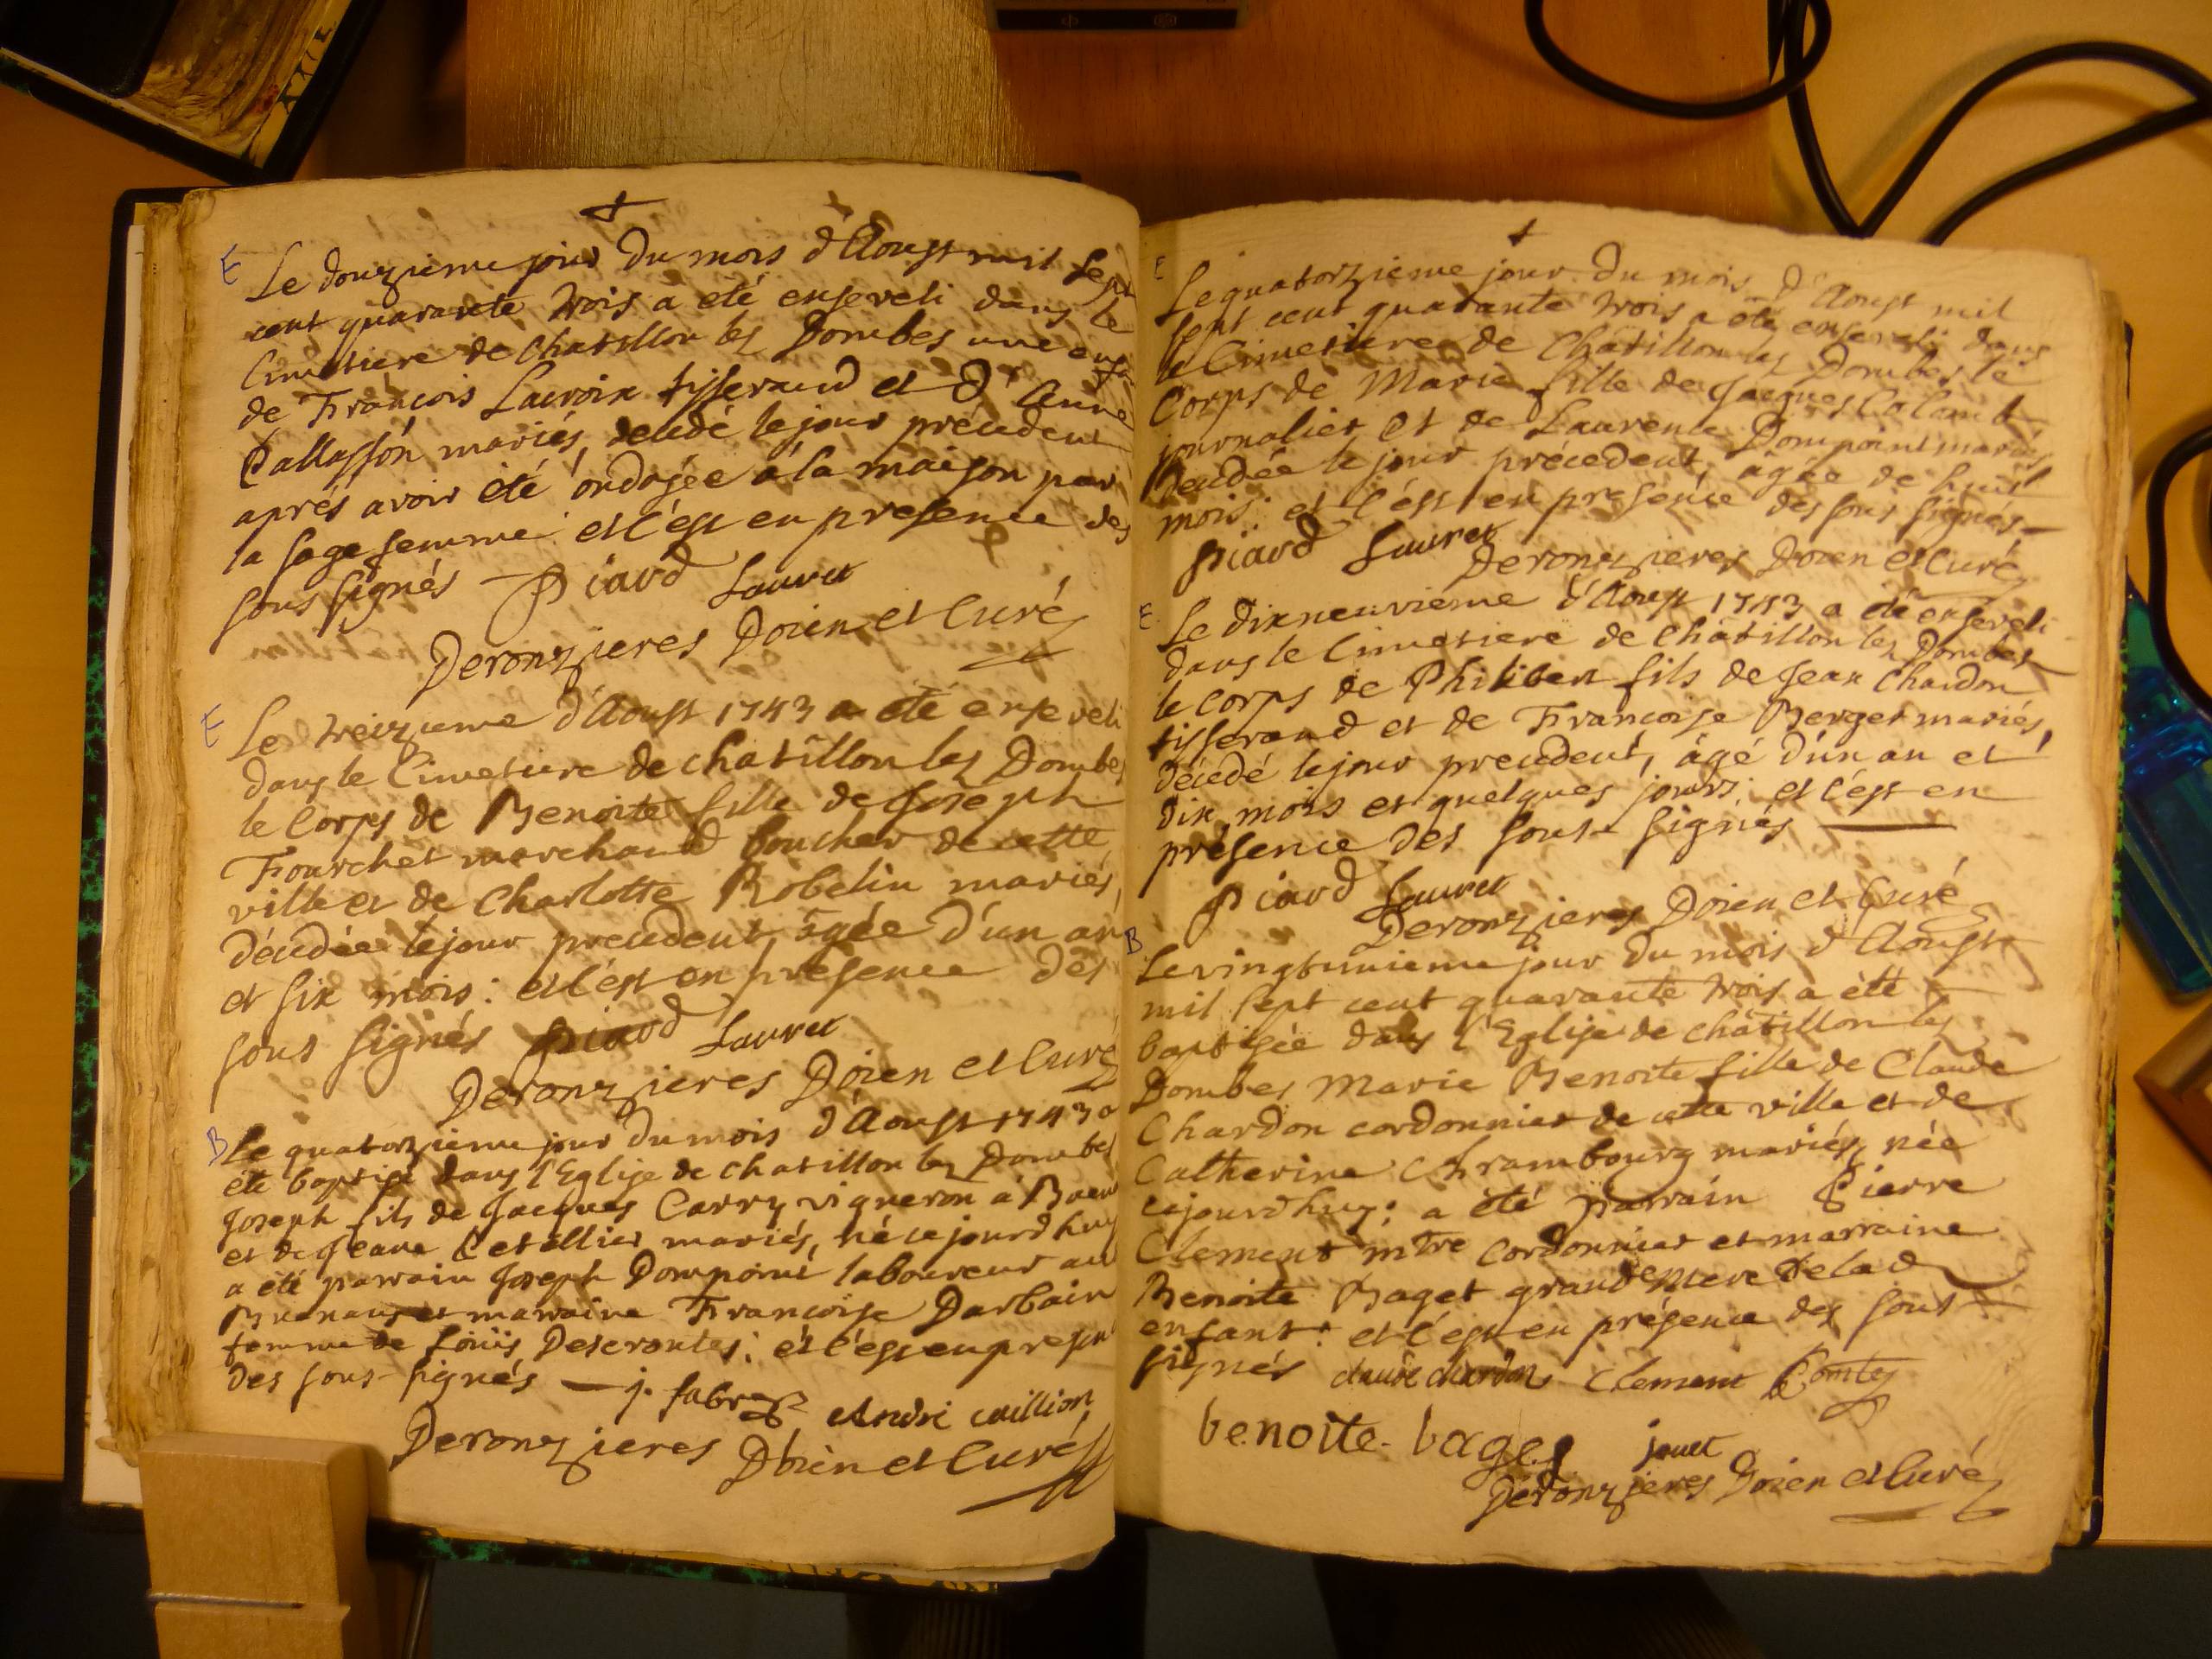 E
Le douzieme jour du mois d'Aoust mil sept
cent quarante trois a été enseveli dans le
Cimetiere de Chatillon les Dombes une
de François Lacroix tisserand et d'Anne
mariés, decedé le jour précedent
aprés avoir été ondoyée a la maison par
la sage femme et c'est en presence des
sous signés Piard Lauret
Deronzieres Doien et Curé
E
Le treizieme d'Aoust 1743 a été enseveli
dans le Cimetiere de chatillon les Dombes
le Corps de Benoite fille de Joseph
Fourchet marchand boucher de cette
ville et de Charlotte Robelin mariés,
décedée le jour precedent, âgée d'un an
et six mois: et c'est en presence des
sous signés Piard Lauret
Deronzieres Doien et Curé
B
Le quatorzieme jour du mois d'Aoust 1743 a
été baptisé dans l'Eglise de chatillon les Dombes
Joseph fils de Jacques Carry vigneron a
et de Jeane mariés, né cejourd'huy
a été parrain Joseph Dompoint laboureur au
et marraine Françoise Darbain
femme de Loüis Descroutes: et c'est en presen
des sous-signés — j. fabre André caillion
Deronzieres Doien et Curé
E
Le quatorzieme jour du mois d'Aoust mil
sept cent quarante trois a été enseveli dans
le Cimetiere de Châtillon les Dombes le
Corps de Marie fille de Jacques Calamb
journalier et de Laurence Dompoint mariés
decedée le jour précedent, âgée de huit
mois: et c'est en presence des sous signés —
Piard Lauret
Deronzieres Doien et Curé
E
Le dixneuviéme d'Aoust 1743 a été enseveli
dans le Cimetiere de Châtillon les Dombes
le corps de Philibert fils de Jean Chardon
tisserand et de Françoise Berger mariés,
décedé le jour precedent, âgé d'un an et
dix mois et quelques jours: et c'est en
présence des sous-signés —
Piard Lauret
Deronzieres Doien et Curé
B
Le vingtunieme jour du mois d'Aoust
mil sept cent quarante trois a été
baptisée dans l'Eglise de châtillon les
Dombes Marie Benoite fille de Claude
Chardon cordonnier de cette ville et de
Catherine Chrambourg mariés, née
cejourd'huy; a été parrain Pierre
Clement mtre Cordonnier et marraine
Benoite Baget grand mere de lad
enfant: et c'est en présence des sous-
signés claude chardon Clement Comte
benoite baget jouet
Deronzieres Doien et Curé